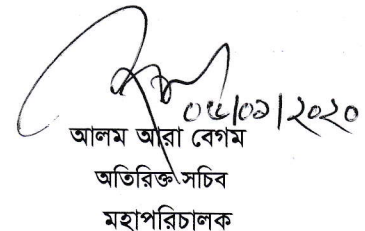 ০৬/০১/২০২০
আলম আরা বেগম
অতিরিক্ত সচিব
মহাপরিচালক